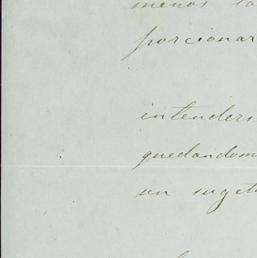 menos
porcionar
intenders
quedandom
un suget